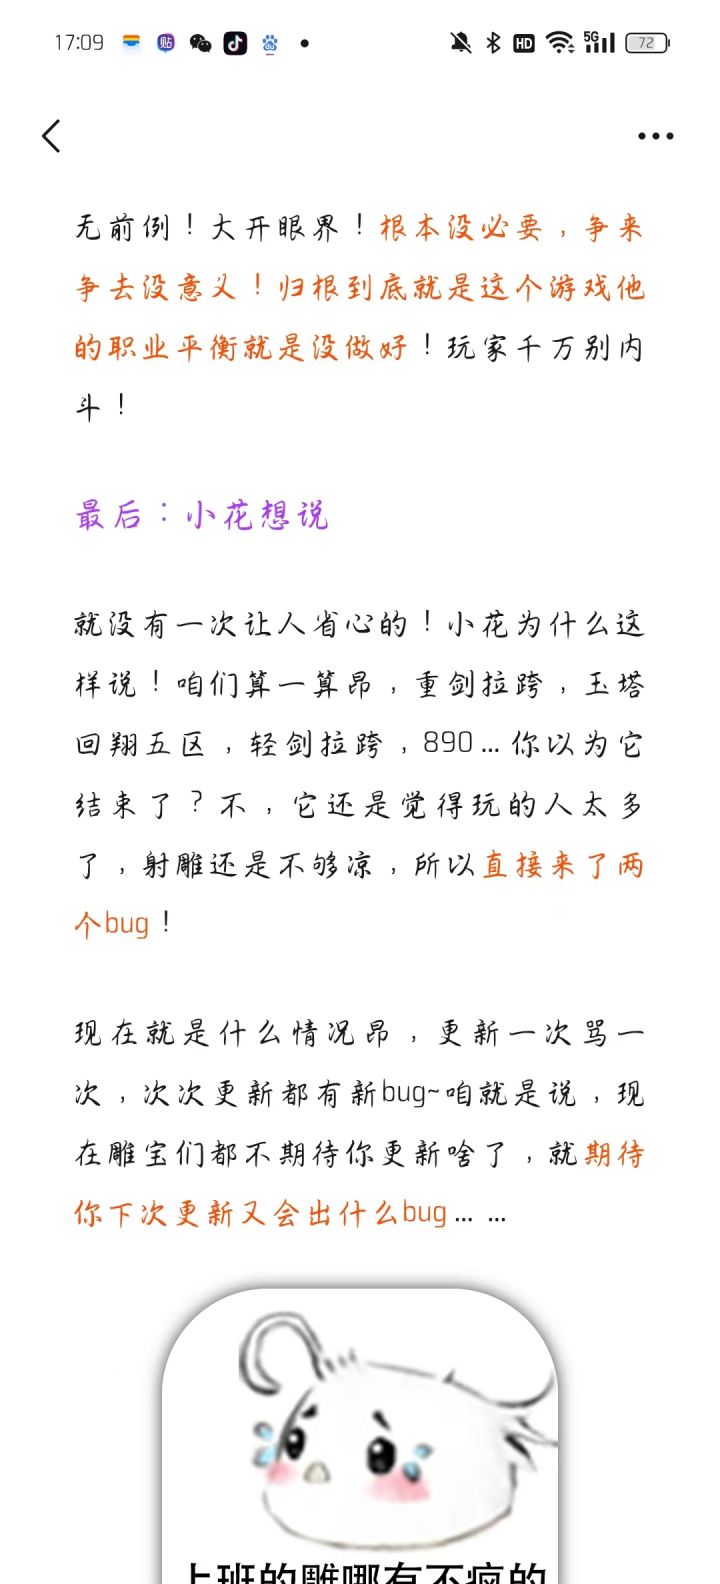 17:09
贴
HD
5G
72
无前例！大开眼界！根本没必要，争来
争去没意义！归根到底就是这个游戏他
的职业平衡就是没做好！玩家千万别内
斗！
最后：小花想说
就没有一次让人省心的！小花为什么这
样说！咱们算一算昂，重剑拉跨，玉塔
回翔五区，轻剑拉跨，890...你以为它
结束了？不，它还是觉得玩的人太多
了，射雕还是不够凉，所以直接来了两
个bug！
现在就是什么情况昂，更新一次骂一
次，次次更新都有新bug~咱就是说，现
在雕宝们都不期待你更新啥了，就期待
你下次更新又会出什么bug... ...
上班的雕哪有不疯的